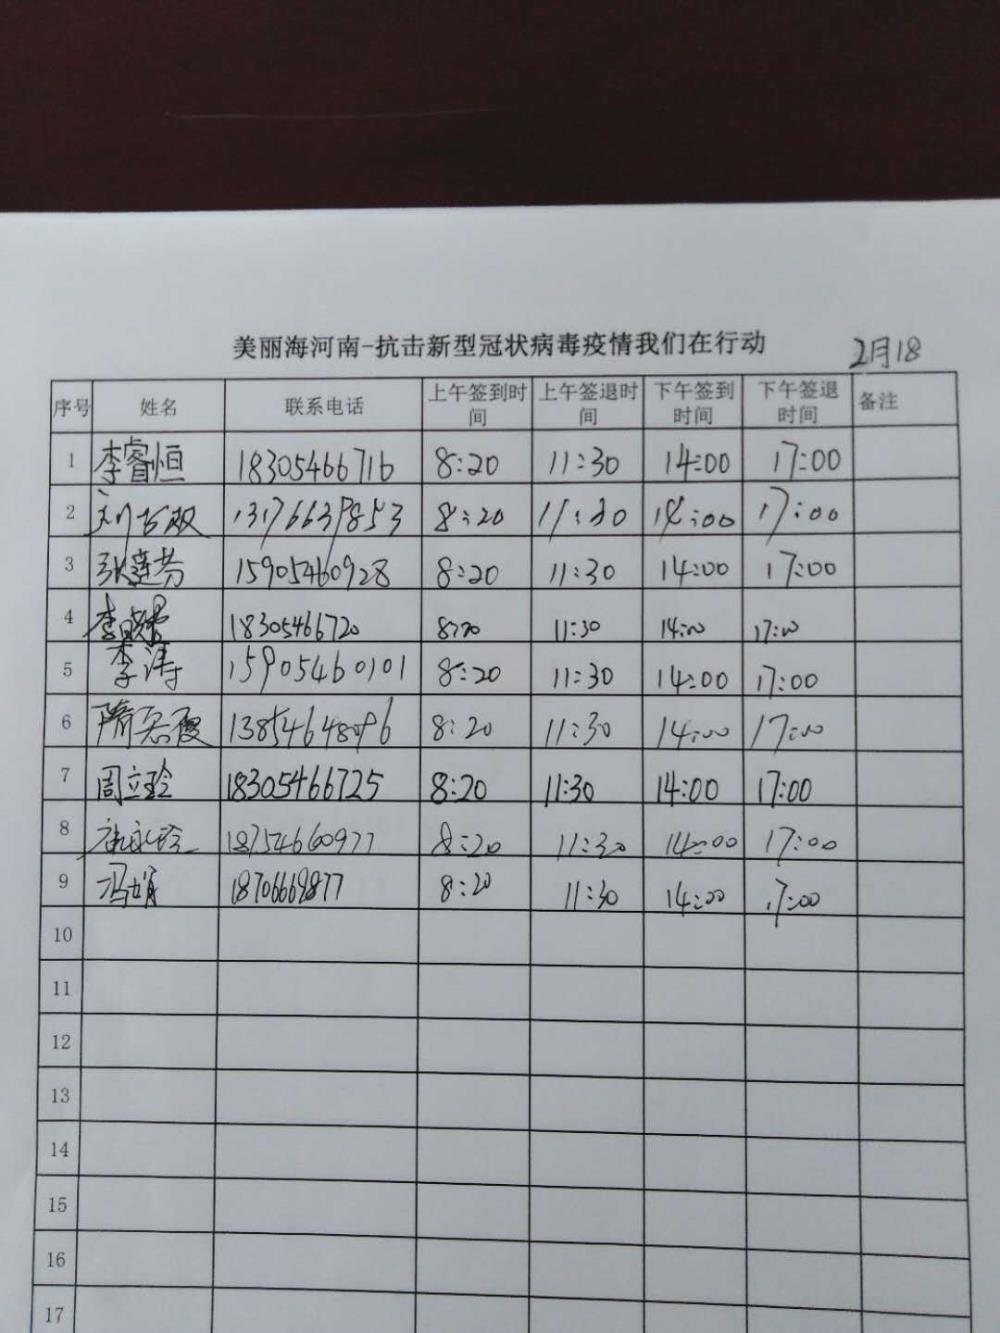 美丽海河南-抗击新型冠状病毒疫情我们在行动 2月18
序号 姓名 联系电话 上午签到时间 上午签退时间 下午签到时间 下午签退时间 备注
1 李睿恒 18305466716 8:20 11:30 14:00 17:00
2 13176637853 8:20 11:30 14:00 17:00
3 张莲芬 15905460928 8:20 11:30 14:00 17:00
4 18305466720 8:20 11:30 14:00 17:00
5 李涛 15905460101 8:20 11:30 14:00 17:00
6 13854648096 8:20 11:30 14:00 17:00
7 周立玲 18305466725 8:20 11:30 14:00 17:00
8 18754660977 8:20 11:30 14:00 17:00
9 冯娟 18706669877 8:20 11:30 14:00 17:00
10
11
12
13
14
15
16
17